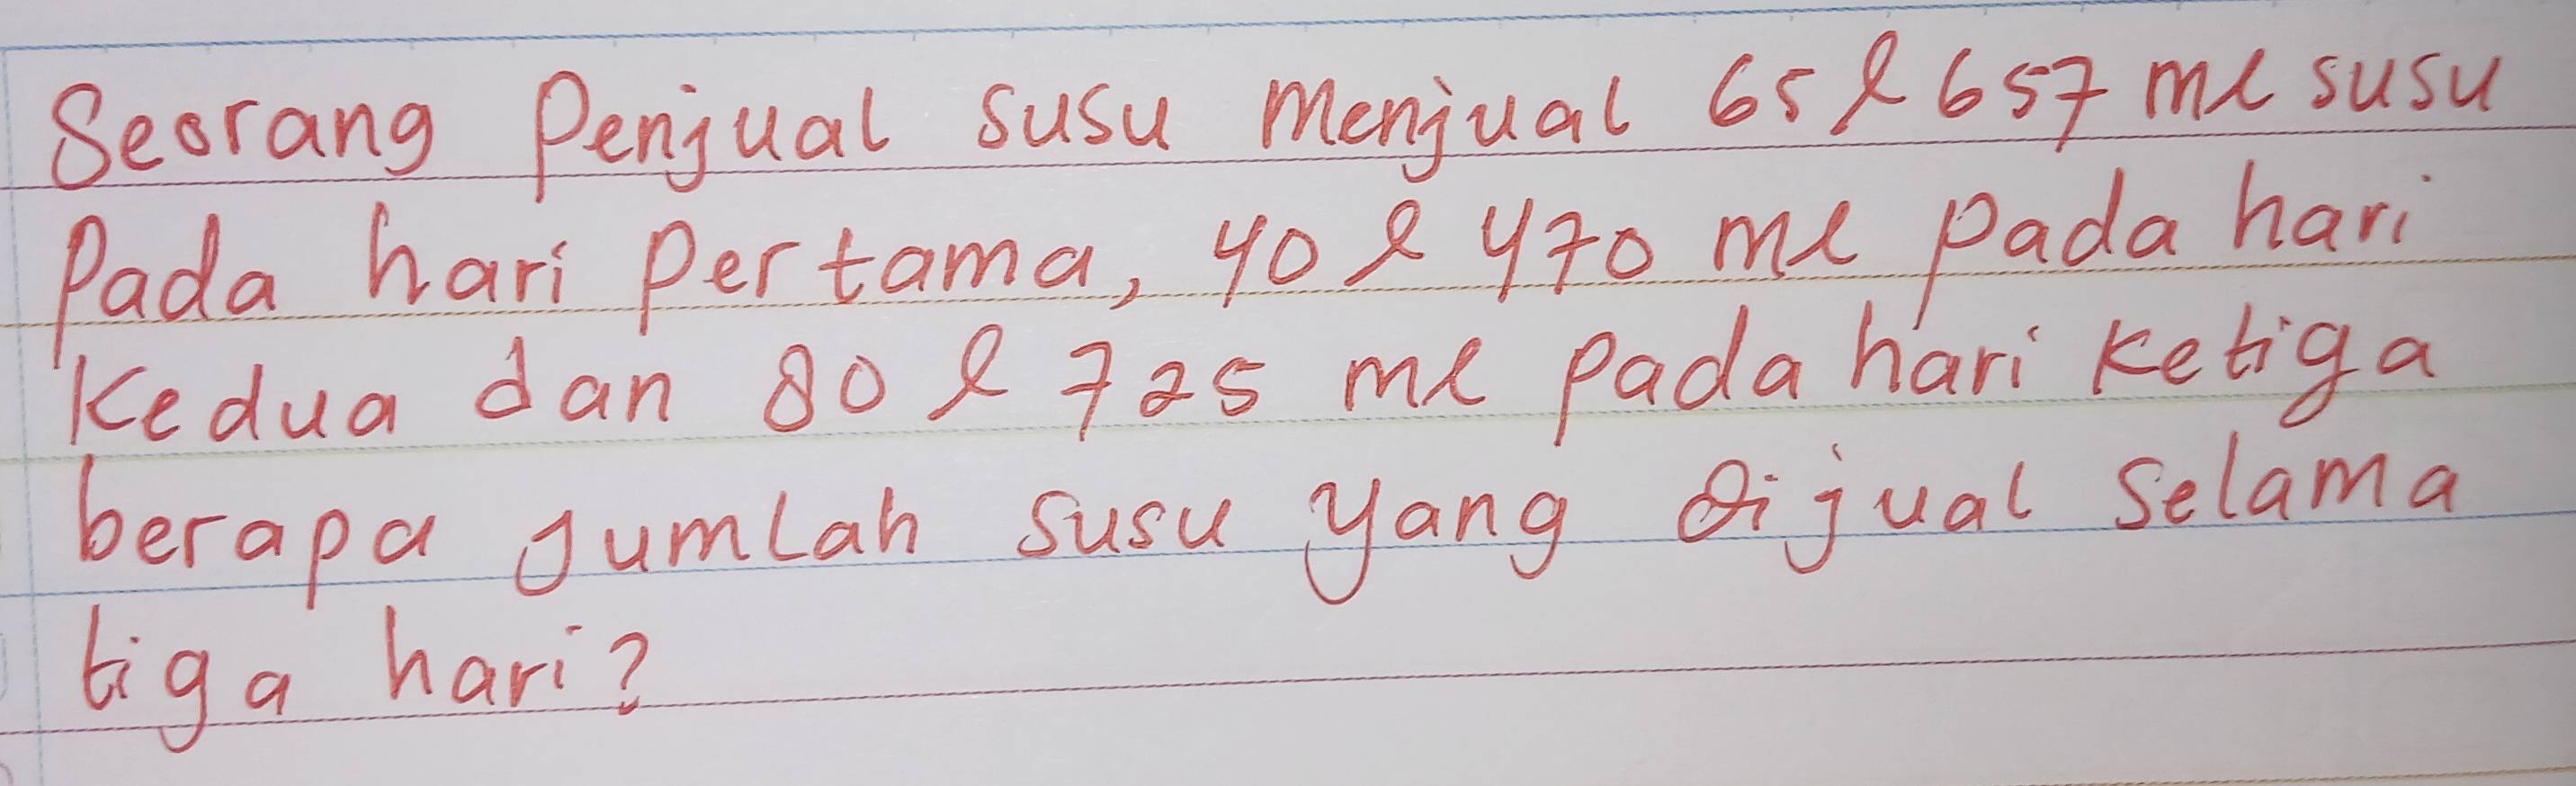 Seorang Penjual susu Menjual 65 l 657 ml susu
Pada hari Pertama, 40 l 470 ml pada hari
Kedua dan 80 l 725 ml pada hari Ketiga
berapa Jumlah susu yang dijual selama
tiga hari?